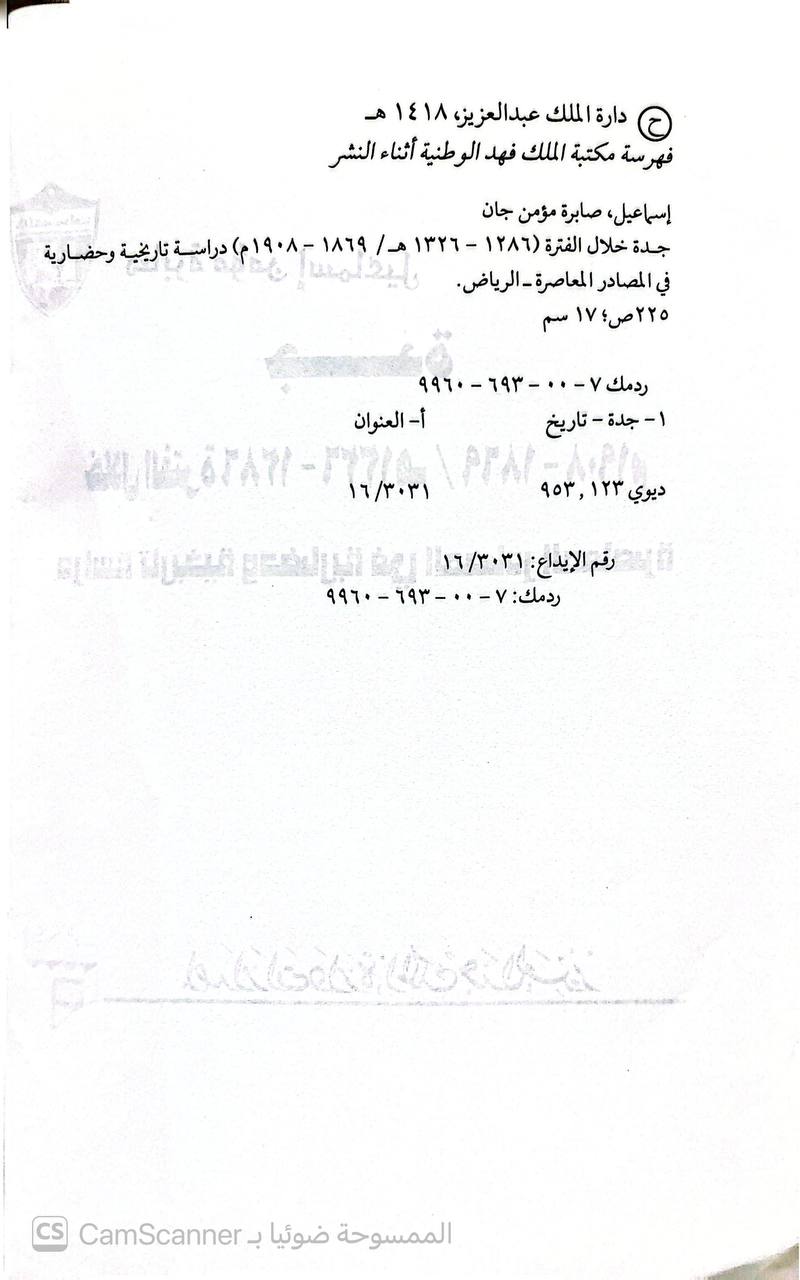 ح دارة الملك عبدالعزيز، ١٤١٨ هـ
فهرسة مكتبة الملك فهد الوطنية أثناء النشر
إسماعيل، صابرة مؤمن جان
جدة خلال الفترة (١٢٨٦ - ١٣٢٦ هـ/ ١٨٦٩ - ١٩٠٨م) دراسة تاريخية وحضارية
في المصادر المعاصرة ـ الرياض.
٢٢٥ص؛ ١٧ سم
ردمك ٧ - ٠٠ - ٦٩٣ - ٩٩٦٠
١- جدة - تاريخ أ- العنوان
ديوي ٩٥٣,١٢٣ ١٦/٣٠٣١
رقم الإيداع: ١٦/٣٠٣١
ردمك: ٧ - ٠٠ - ٦٩٣ - ٩٩٦٠
الممسوحة ضوئيا بـ CamScanner
CS